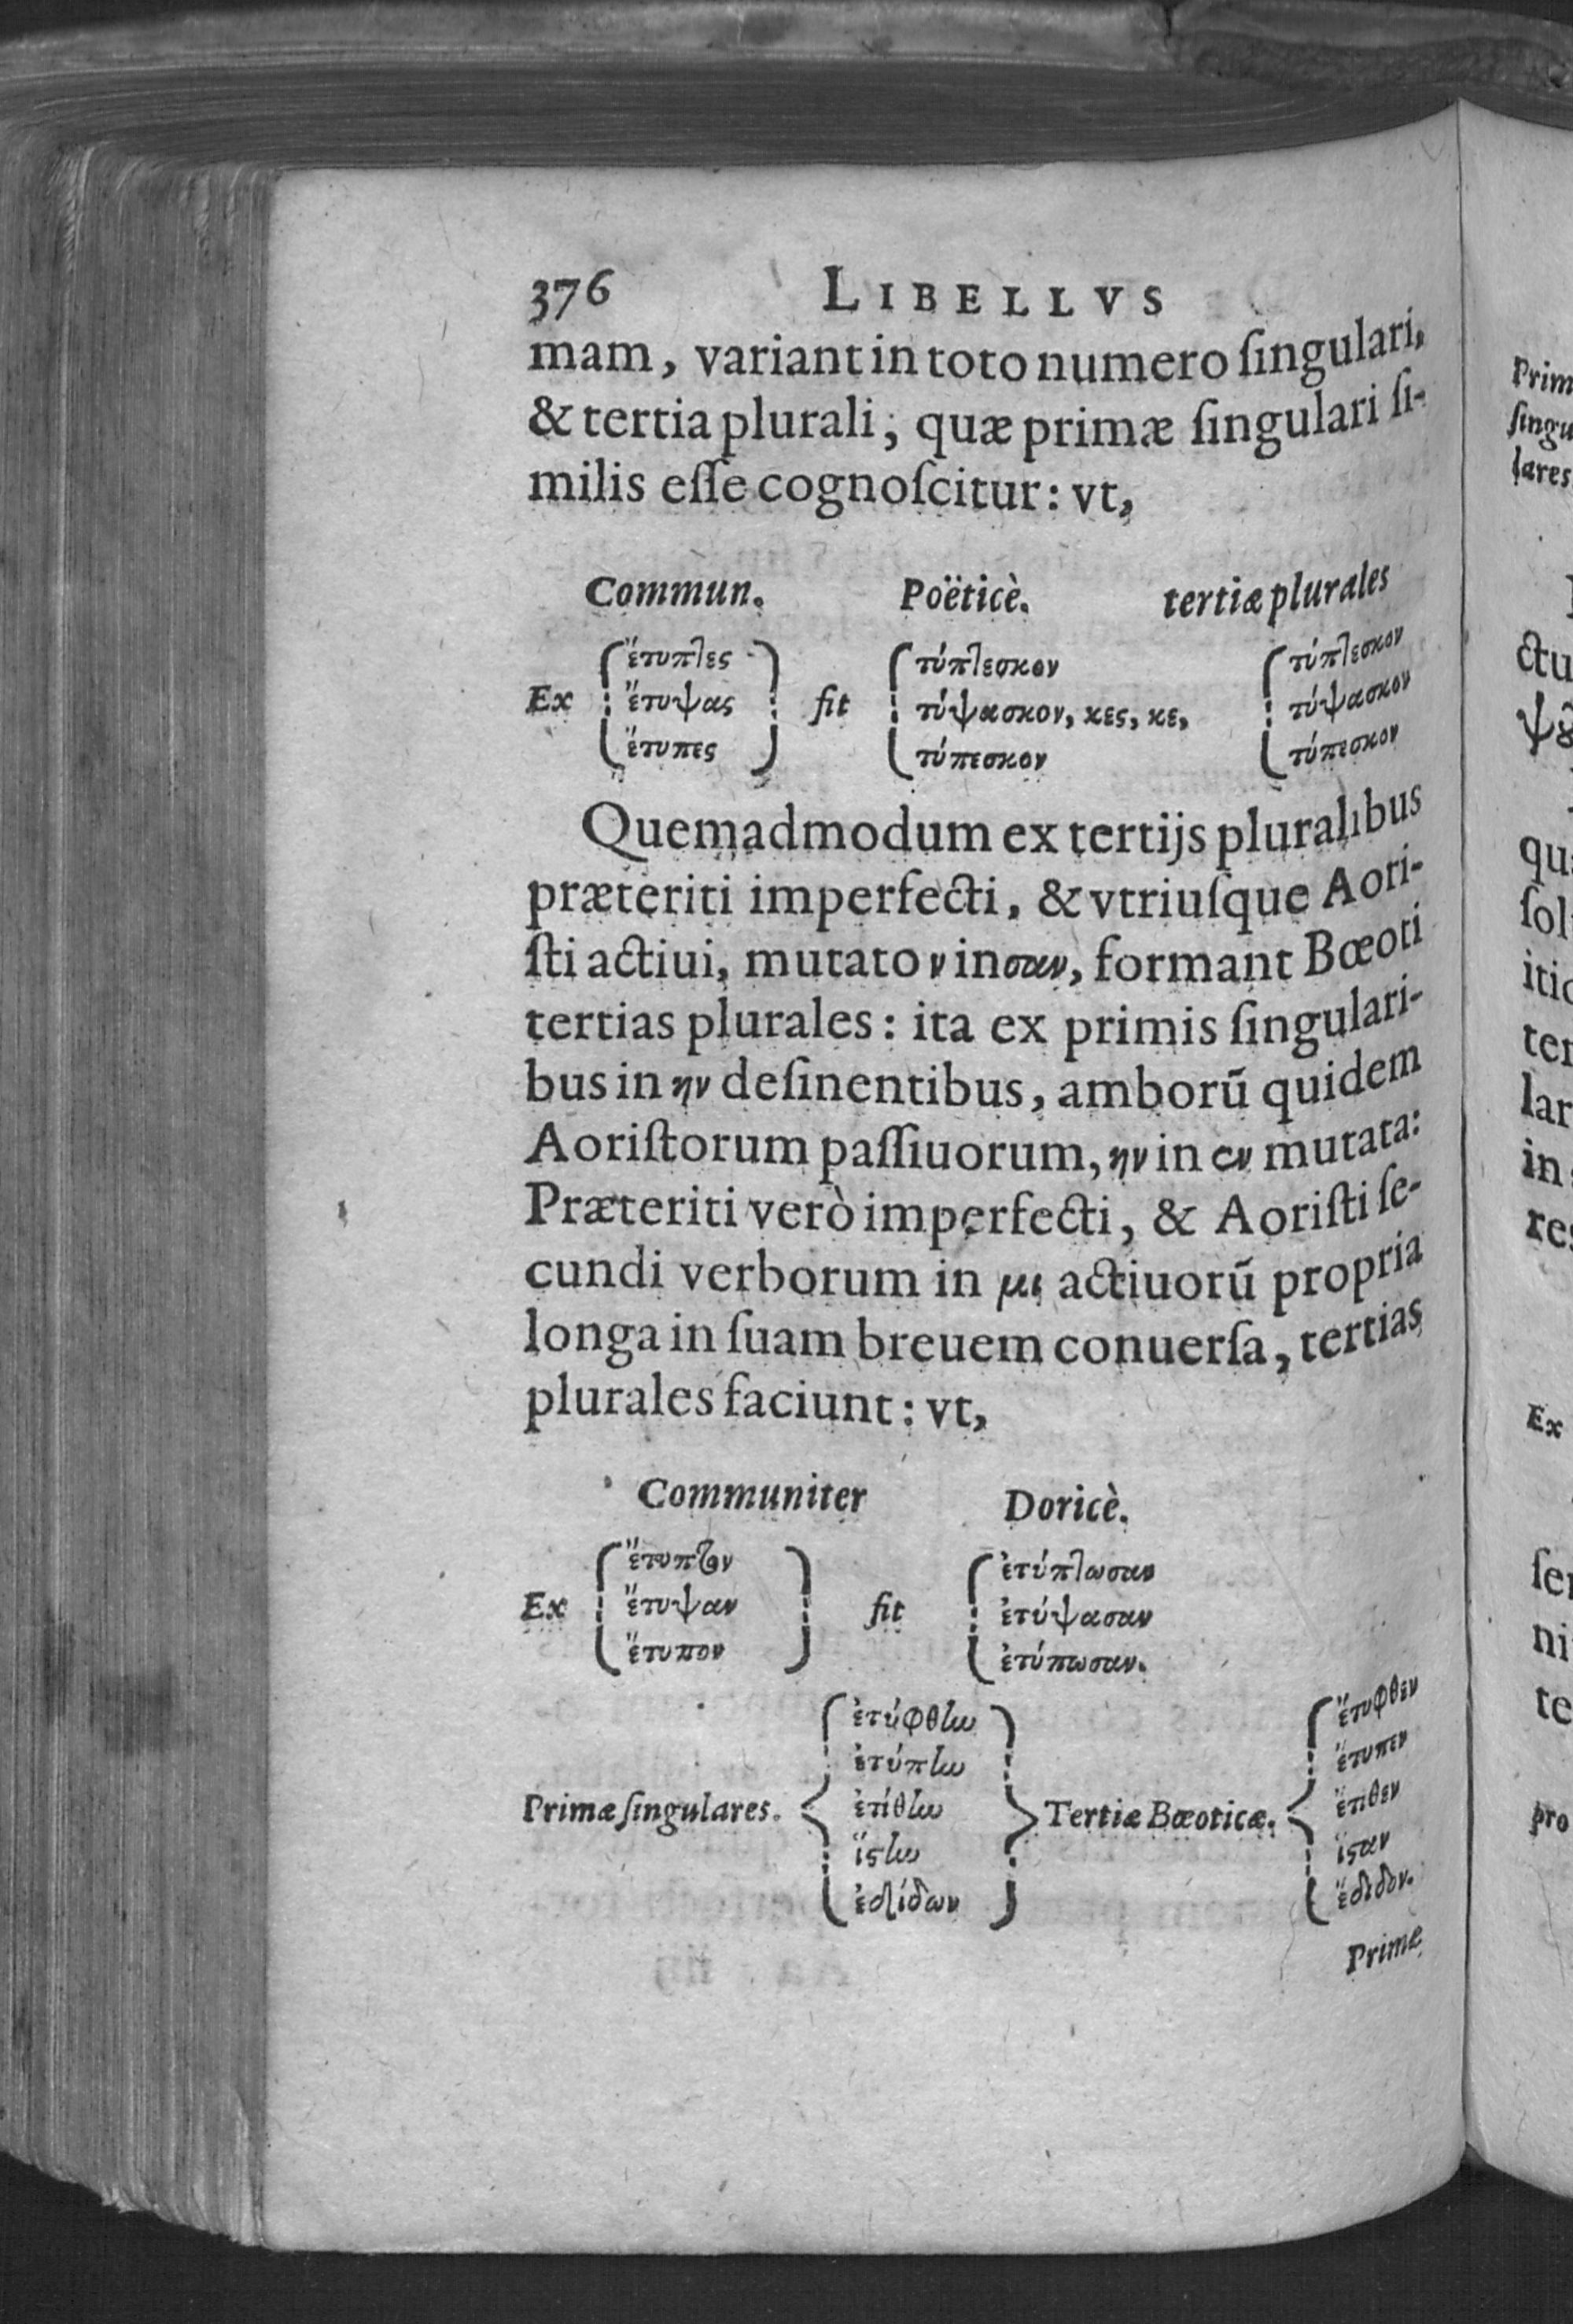 376 LIBELLVS
mam, variant in toto numero ſingulari,
& tertia plurali; quæ primæ ſingulari ſi-
milis eſſe cognoſcitur: vt,
Commun. Poëticè. tertiæ plurales
ἔτυπτες τύπτεσκον τύπτεσκον
Ex ἔτυψας fit τύψασκον, κες, κε, τύψασκον
ἔτυπες τύπεσκον τύπεσκον
Quemadmodum ex tertijs pluralibus
præteriti imperfecti, & vtriuſque Aori-
ſti actiui, mutato ν in σαν, formant Bœoti
tertias plurales: ita ex primis ſingulari-
bus in ην deſinentibus, amborū quidem
Aoriſtorum paſſiuorum, ην in εν mutata:
Præteriti verò imperfecti, & Aoriſti ſe-
cundi verborum in μι actiuorū propria
longa in ſuam breuem conuerſa, tertias
plurales faciunt: vt,
Communiter Doricè.
ἔτυπτον ἐτύπτωσαν
Ex ἔτυψαν fit ἐτύψασαν
ἔτυπον ἐτύπωσαν.
ἐτύφθην ἔτυφθεν
ἐτύπην ἔτυπεν
Primæ ſingulares. ἐτίθην Tertiæ Bœoticæ. ἔτιθεν
ἵϛην ἵϛαν
ἐδίδων ἔδιδον.
Primæ
Prim
ſingu
lares
ctu
qu
ſol
itio
ter
lar
in
res
Ex
ſer
ni
te
pro